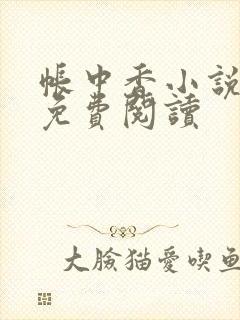 帳中香小説
免費閱讀
大臉猫愛喫魚